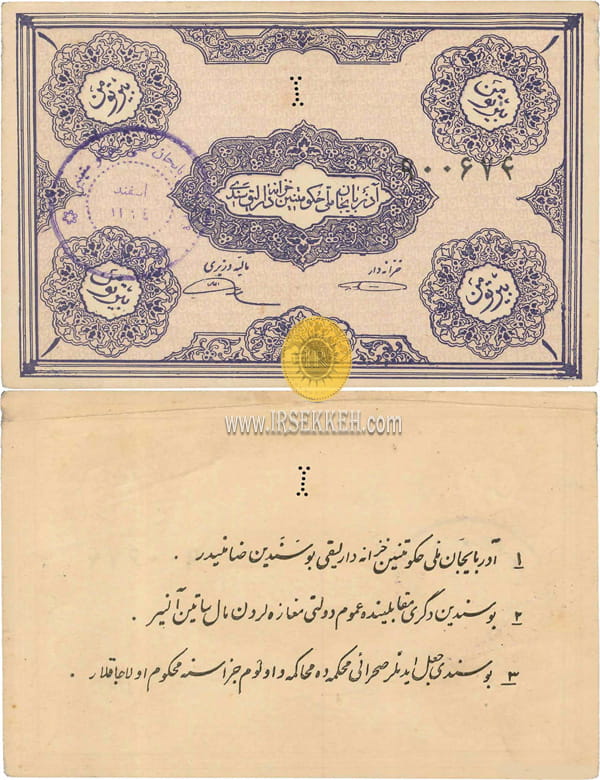 بیر تومن
بیر تومن
اسفند
آذربایجان ملی حکومتینین خزانه دارلیق سندی
۹۰۰۶۷۴
مالیه وزیری
خزانه دار
بیر تومن
بیر تومن
www.IRSEKKEH.com
۱ آذربایجان ملی حکومتینین خزانه داریلقی بو سندین ضامنیدر .
۲ بوسندین دگری مقابلینده عموم دولتی مغازه لردن مال ساتین آلنیر .
۳ بوسندی جعل ایدنلر صحرائی محکمه ده محاکمه و اولوم جزاسنه محکوم اولاجاقلار .